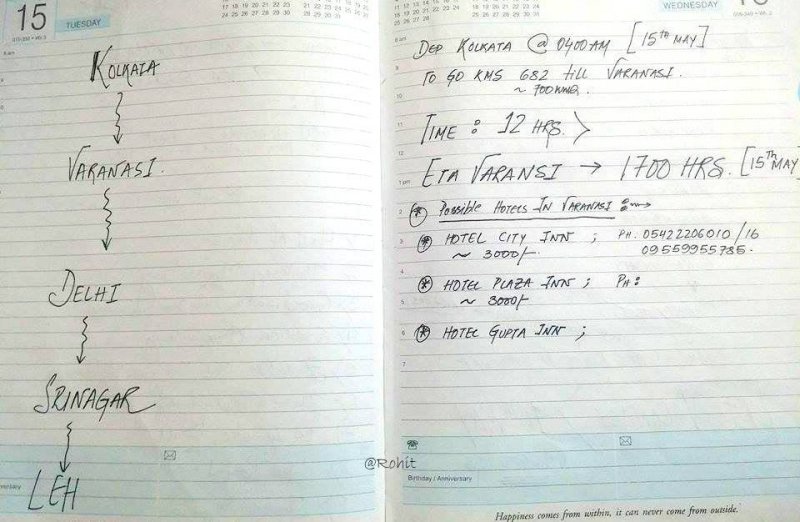 15
TUESDAY
KOLKATA
VARANASI.
DELHI
SRINAGAR
LEH
@Rohit
WEDNESDAY
DEP KOLKATA @ 0400AM [15TH MAY]
TO GO KMS 682 till VARANASI.
~ 700KMS.
TIME : 12 HRS.
ETA VARANSI → 1700 HRS. [15TH MAY
* Possible Hotels In VARANASI :
* HOTEL CITY INN ; PH. 05422206010/16
~ 3000/- 09559955785.
* HOTEL PLAZA INN ; PH:
~ 3000/-
* HOTEL GUPTA INN ;
Birthday / Anniversary
Happiness comes from within, it can never come from outside.